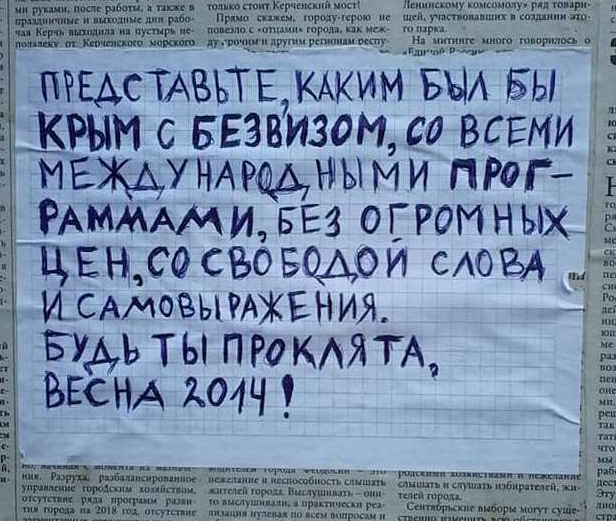 ми руками, после работы, а также в
праздничные и выходные дни рабо-
чая Керчь выходила на пустырь не-
подалеку от Керченского морского
только стоит Керченский мост!
Прямо скажем, городу-герою не
повезло с «отцами» города, как меж-
ду прочим и другим регионам респу-
Ленинскому комсомолу» ряд товари-
щей, участвовавших в создании это-
го парка.
На митинге много говорилось о
ПРЕДСТАВЬТЕ, КАКИМ БЫЛ БЫ
КРЫМ С БЕЗВИЗОМ, СО ВСЕМИ
МЕЖДУНАРОДНЫМИ ПРОГ-
РАММАМИ, БЕЗ ОГРОМНЫХ
ЦЕН, СО СВОБОДОЙ СЛОВА
И САМОВЫРАЖЕНИЯ.
БУДЬ ТЫ ПРОКЛЯТА,
ВЕСНА 2014!
ния. Разруха, разбалансированное
управление городским хозяйством,
отсутствие ряда программ разви-
тия города на 2018 год, отсутствие
нежелание и неспособность слышать
жителей города. Выслушивать – они-
то выслушивали, а практически реа-
лизация нулевая по всем вопросам и
слышать и слушать избирателей, жи-
телей города.
Сентябрьские выборы могут суще-